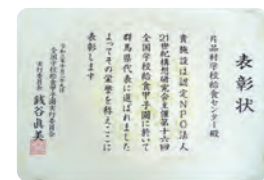 表彰状
片品村学校給食センター殿
貴施設は認定NPO法人
21世紀構想研究会主催第十六回
全国学校給食甲子園に於いて
群馬県代表に選ばれました
よってその栄誉を称えここに
表彰します
全国学校給食甲子園
実行委員会
実行委員長
銭谷眞美